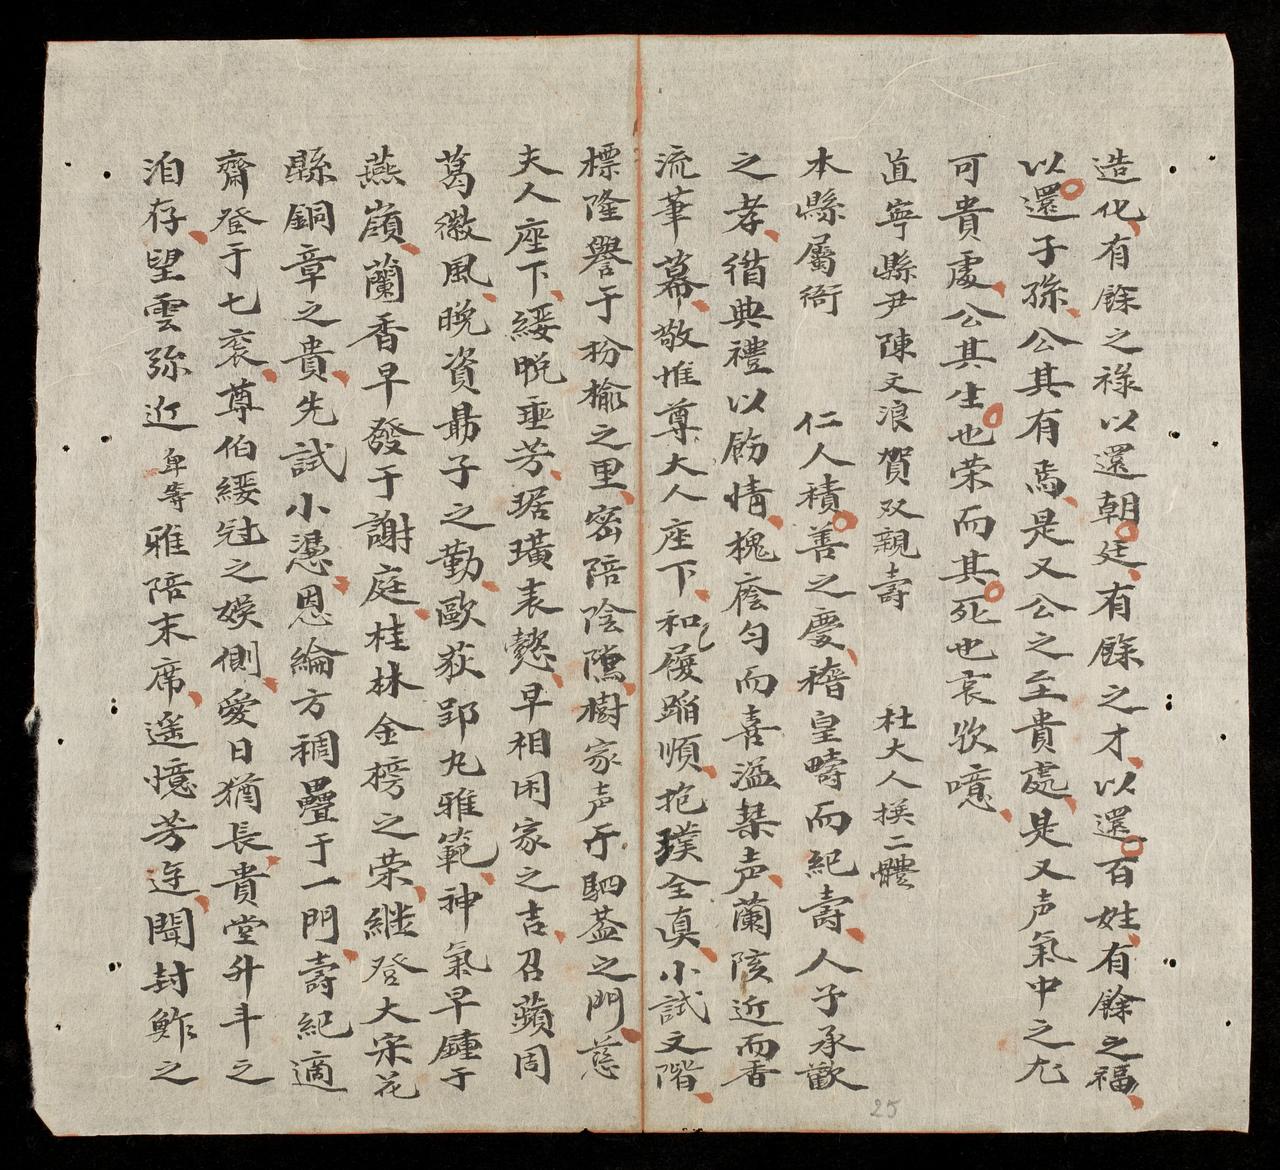 造化有餘之祿以還朝廷有餘之才以還百姓有餘之福
以還子孫公其有焉是又公之至貴處是又声氣中之尤
可貴處公其生也荣而其死也哀欤噫
直寧縣尹陳文浪賀双親壽 杜大人撰二體
本縣屬衙 仁人積善之慶稽皇疇而紀壽人子承歡
之孝偕典禮以飭情槐廕匀而喜溢琹声蘭陔近而香
流筆幕敬惟尊大人座下和履蹈順抱璞全真小試文階
標隆譽于枌榆之里密陪陰隲樹家声于駟蓋之門慈
夫人座下綏帨垂芳琚璜表懿早相闲家之吉召蘋周
葛徽風晚資勗子之勤歐荻郢丸雅範神氣早鍾于
燕嶺蘭香早發于謝庭桂林金榜之荣継登大宋花
縣銅章之貴先試小憑恩綸方稠疊于一門壽紀適
齋登于七袠尊伯綏冠之娛側愛日猶長貴堂升斗之
洎存望雲弥近卑等雅陪末席遥憶芳筵聞封鮓之
25